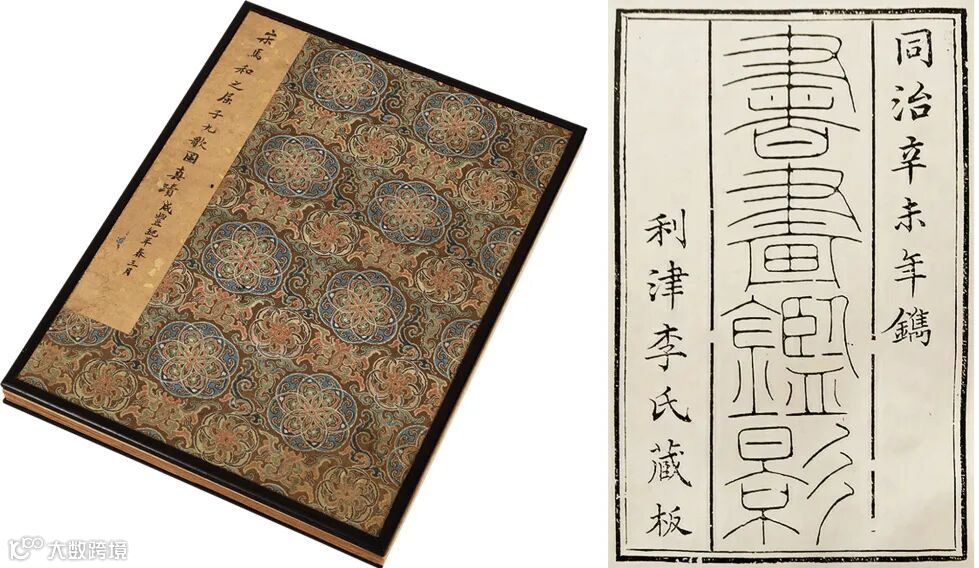 宋馬和之屈子九歌圖真蹟
咸豐紀年春三月
同治辛未年鐫
書畫鑑影
利津李氏藏板
大数跨境